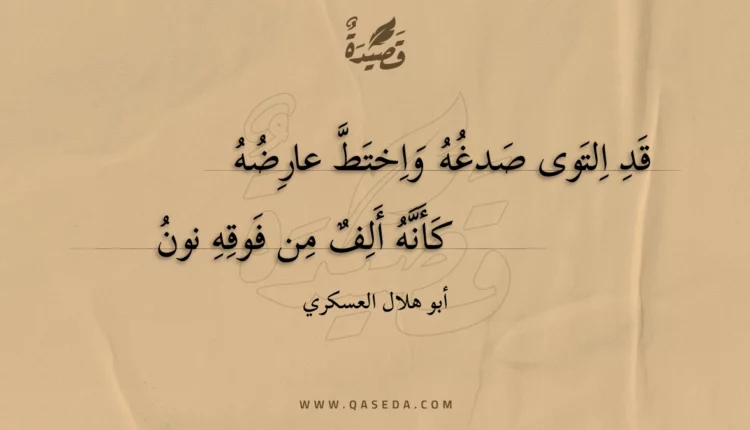 قَصِيدَةٌ
قَدِ اِلتَوى صَدغُهُ وَاِختَطَّ عارِضُهُ
كَأَنَّهُ أَلِفٌ مِن فَوقِهِ نونُ
أبو هلال العسكري
WWW.QASEDA.COM